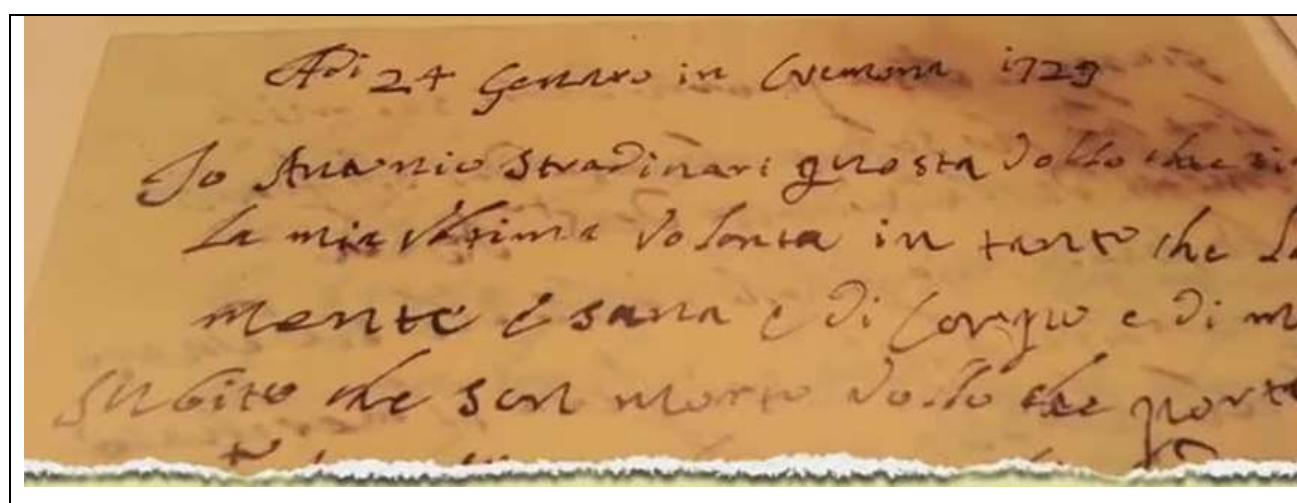 Adi 24 Genaro in Cremona 1729
Io Antonio Stradivari questa vollo che
La mia Vltima Volonta in tanto che La
mente e sana e di Corpo e di
Subito che son morto vollo che